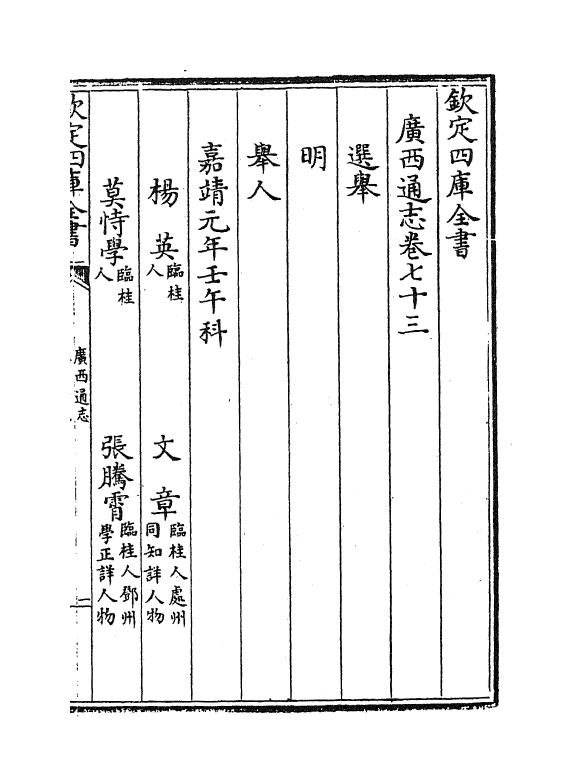 欽定四庫全書
廣西通志卷七十三
選舉
明
舉人
嘉靖元年壬午科
楊英 臨桂人 文章 臨桂人處州同知詳人物
莫恃學 臨桂人 張騰霄 臨桂人鄧州學正詳人物
欽定四庫全書 廣西通志 一